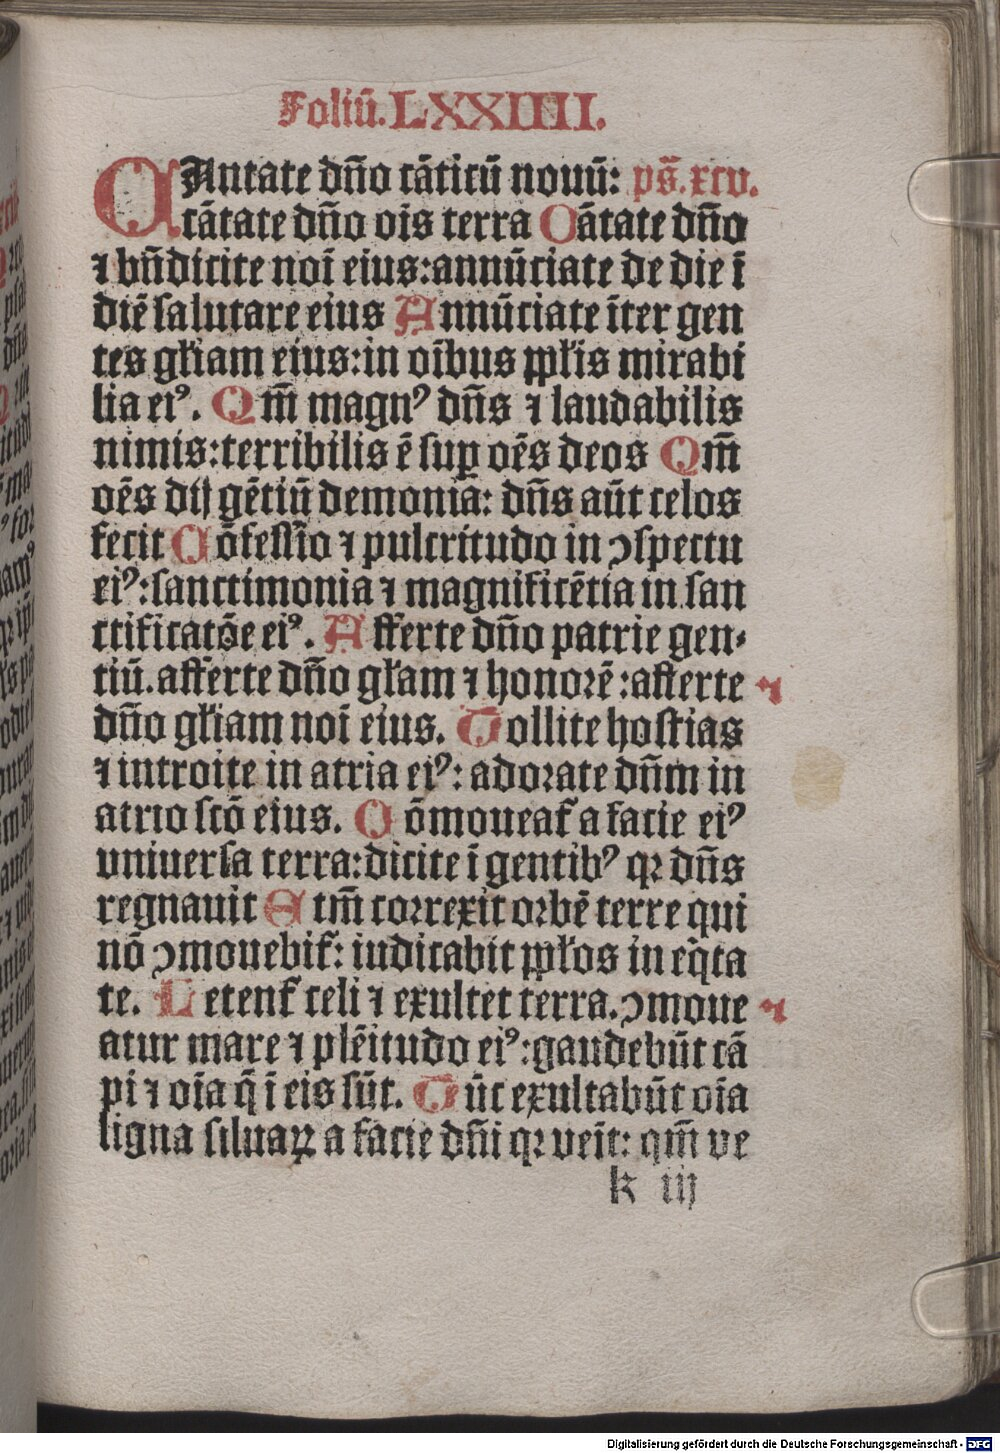 Foliū. LXXIIII.
CAntate dn̄o cāticū nouū: ps̄. xcv.
cātate dn̄o ois terra Cātate dn̄o
⁊ bn̄dicite noī eius: annūciate de die ī
diē salutare eius Annūciate īter gen
tes gl̄iam eius: in oībus ppl̄is mirabi
lia eiꝰ. Qm̄ magnꝰ dn̄s ⁊ laudabilis
nimis: terribilis ē suꝑ oēs deos Qm̄
oēs dij gētiū demonia: dn̄s aūt celos
fecit Cōfessīo ⁊ pulcritudo in ↄspectu
eiꝰ: sanctimonia ⁊ magnificētia in san
ctificatōe eiꝰ. Afferte dn̄o patrie gen-
tiū. afferte dn̄o gl̄am ⁊ honorē: afferte
dn̄o gl̄iam noī eius. Tollite hostias
⁊ introite in atria eiꝰ: adorate dn̄m in
atrio scō eius. Cōmoueat̄ a facie eiꝰ
uniuersa terra: dicite ī gentibꝰ qꝛ dn̄s
regnauit Etm̄ correxit orbē terre qui
nō ↄmouebit̄: iudicabit ppl̄os in eq̄ta
te. Letent̄ celi ⁊ exultet terra. ↄmoue
atur mare ⁊ plēitudo eiꝰ: gaudebūt cā
pi ⁊ oīa q̄ ī eis sūt. Tūc exultabūt oīa
ligna siluaꝝ a facie dn̄i qꝛ veīt: qm̄ ve
k iij
Digitalisierung gefördert durch die Deutsche Forschungsgemeinschaft - DFG